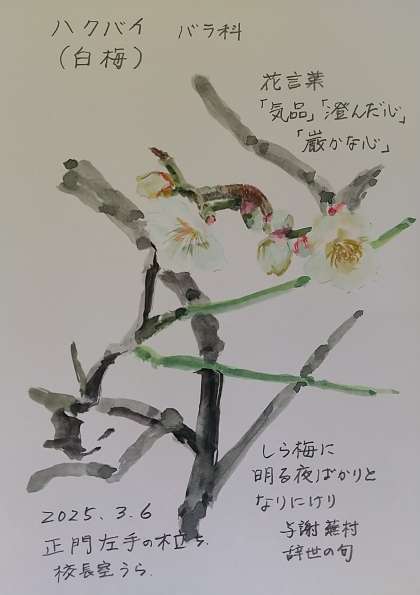 ハクバイ バラ科
(白梅)
花言葉
「気品」「澄んだ心」
「厳かな心」
しら梅に
明る夜ばかりと
なりにけり
与謝蕪村
辞世の句
2025.3.6
正門左手の木立ち.
校長室うら.